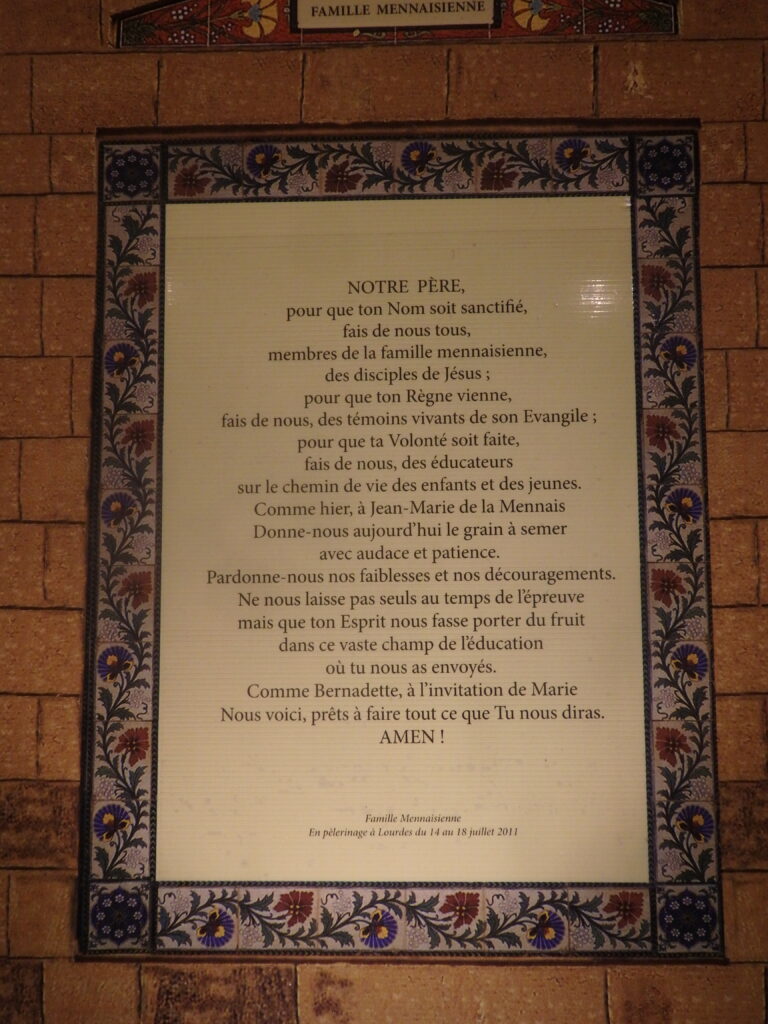 FAMILLE MENNAISIENNE
NOTRE PÈRE,
pour que ton Nom soit sanctifié,
fais de nous tous,
membres de la famille mennaisienne,
des disciples de Jésus ;
pour que ton Règne vienne,
fais de nous, des témoins vivants de son Evangile ;
pour que ta Volonté soit faite,
fais de nous, des éducateurs
sur le chemin de vie des enfants et des jeunes.
Comme hier, à Jean-Marie de la Mennais
Donne-nous aujourd'hui le grain à semer
avec audace et patience.
Pardonne-nous nos faiblesses et nos découragements.
Ne nous laisse pas seuls au temps de l'épreuve
mais que ton Esprit nous fasse porter du fruit
dans ce vaste champ de l'éducation
où tu nous as envoyés.
Comme Bernadette, à l'invitation de Marie
Nous voici, prêts à faire tout ce que Tu nous diras.
AMEN !
Famille Mennaisienne
En pèlerinage à Lourdes du 14 au 18 juillet 2011